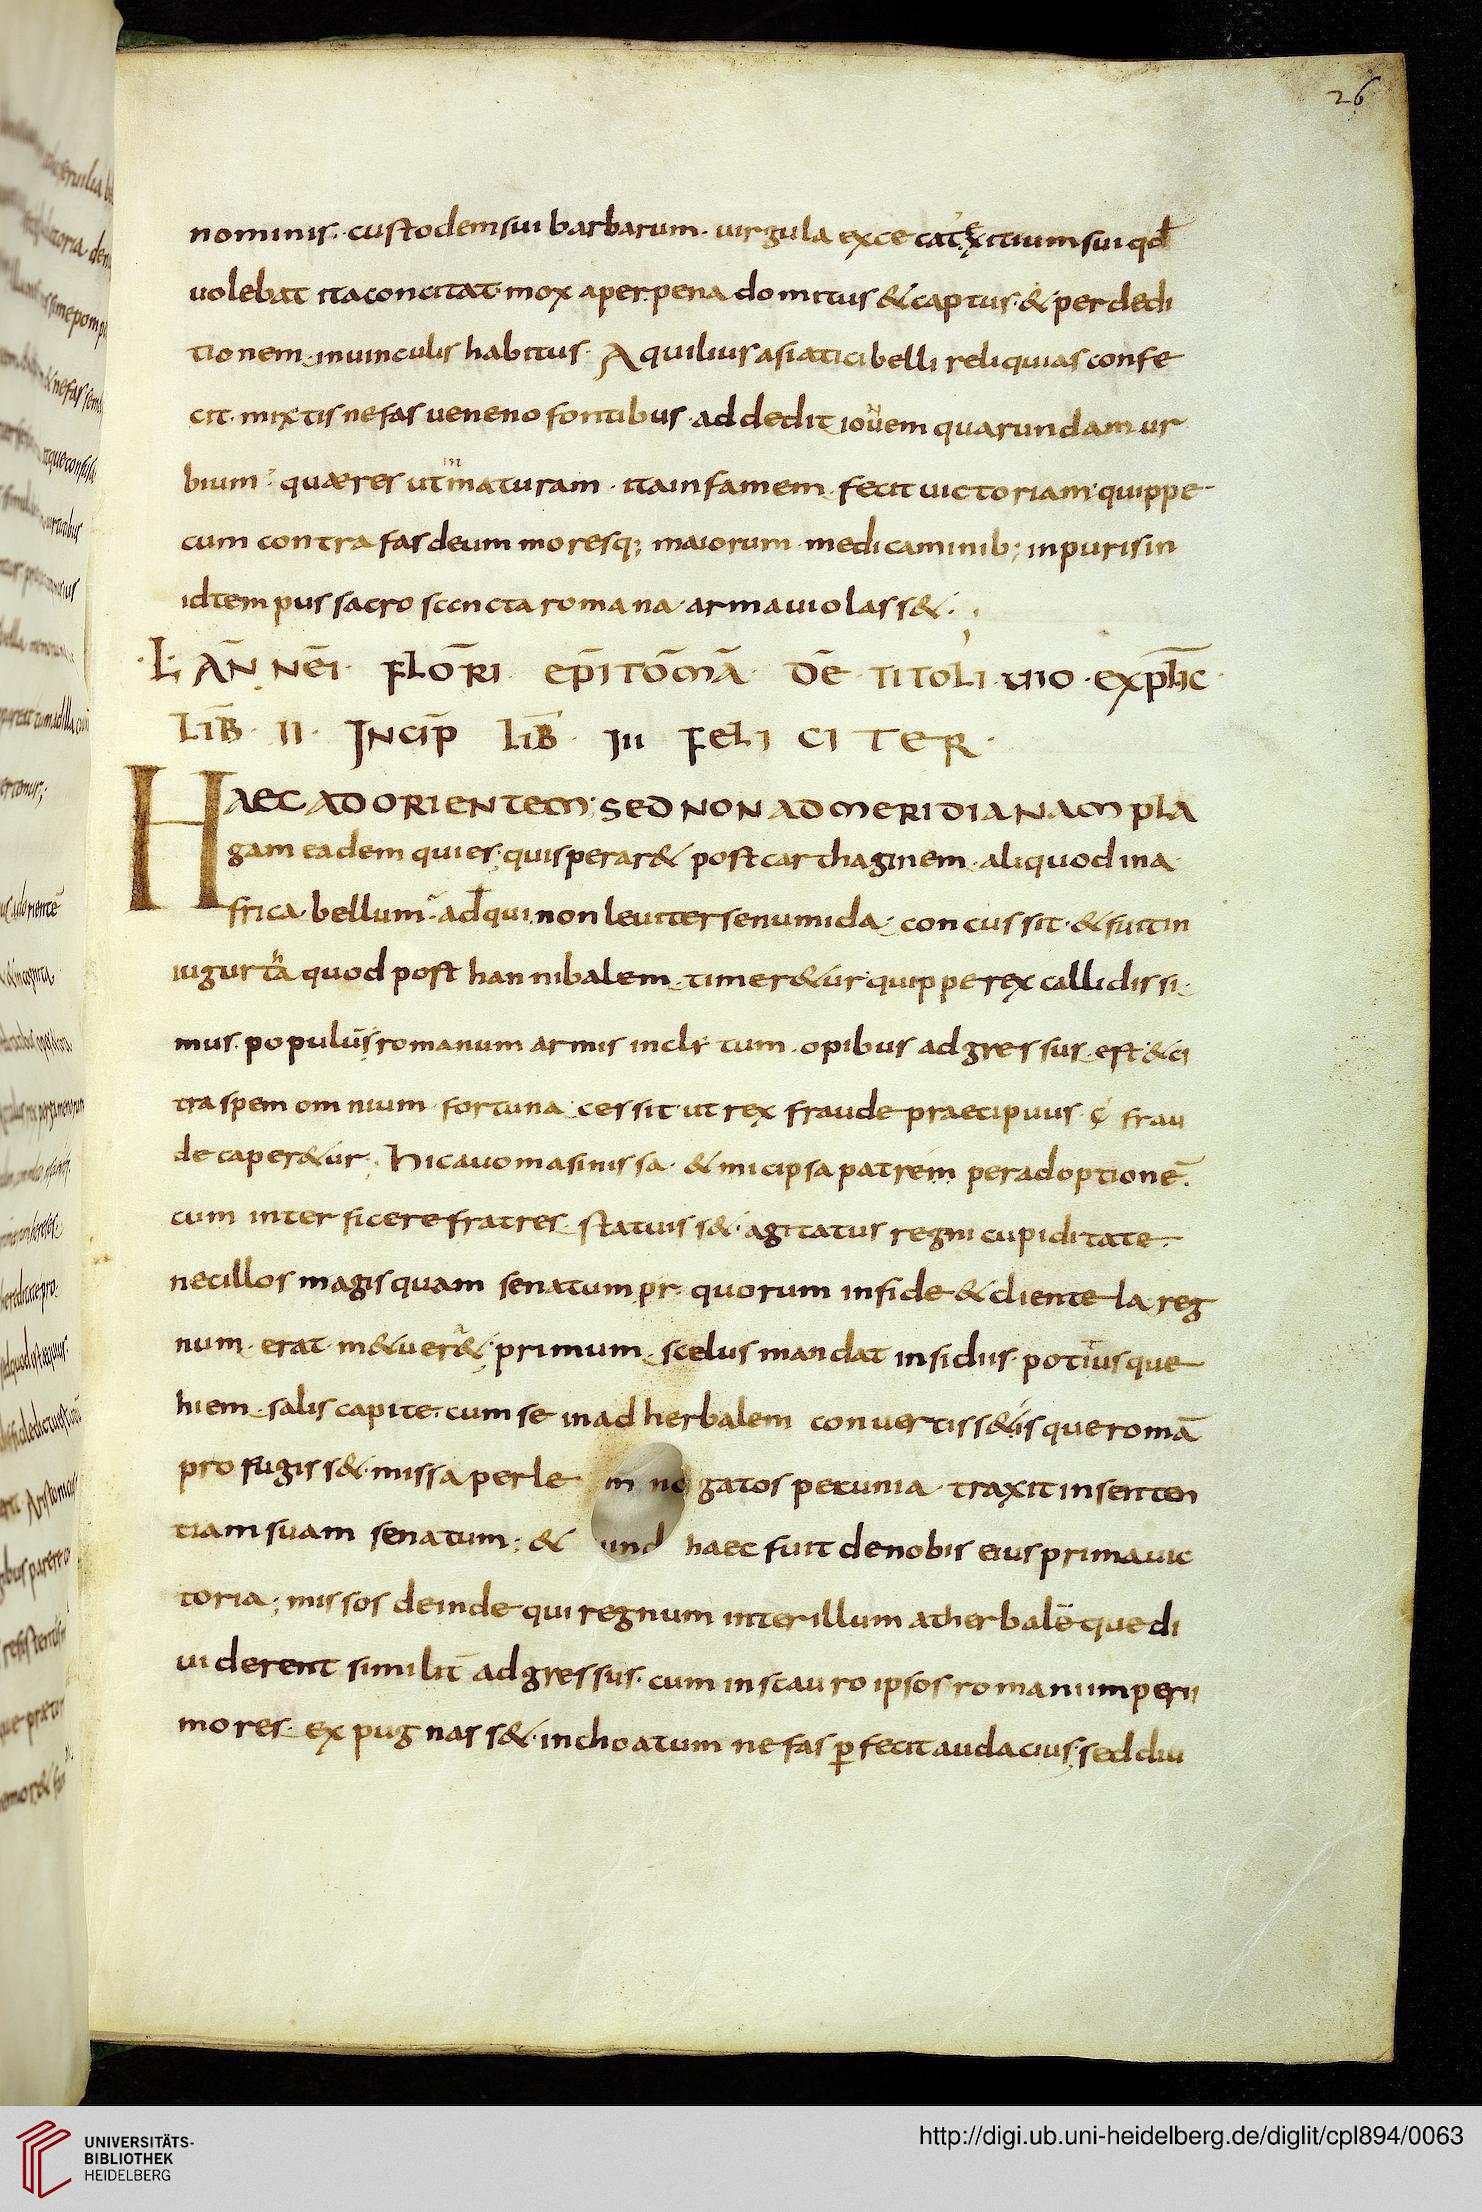 26
nominis· custodem sui barbarum· uirgula excecat· exitium sui qđ
uolebat ita concitat· mox aperpena domitus & captus· & per dedi
tionem· in uinculis habitus· Aquilius asiatici belli reliquias confe
cit· mixtis nefas ueneno fontibus· ad deditiouem quarundam ur
bium· quae res ut maturam· ita infamem· fecit uictoriam· quippe
cum contra fas deum moresq; maiorum· medicaminib; inpuris in
id tempus sacro sccncta romana· arma uiolass&·
·L· ANNEI· FLORI EPITOMA· DE TITO LIUIO· EXPLIC·
LIB̄· II· INCIP̄ LIB̄· III FELICITER·
HAEC AD ORIENTEM· SED NON AD MERIDIANAM PLA
gam eadem quies· quis perar& post carthaginem· aliquod in a
frica· bellum· adqui non leuiter se numida· concussit· & fuit in
iugurta quod post hannibalem· timer&ur· quippe rex callidissi
mus· populus romanum armis inclitum· opibus adgressus· est· & ci
tra spem omnium· fortuna· cessit· ut rex fraude praecipuus· frau
de caper&ur· Hic auo masinissa· & micipsa patrem per adoptionē·
cum interficere fratres· statuiss&· agitatus regni cupiditate·
nec illos magis quam senatum pr· quorum in fide & clientela reg
num· erat· m&uer&· primum· scelus mandat insidiis· potitusque
hiemsalis capite· cum se in adherbalem conuertiss& isque romā
profugiss&· missa per le gatos pecunia· traxit in senten
tiam suam senatum; & haec fuit de nobis eius prima uic
toria; missos deinde qui regnum inter illum atherbalēque di
uiderent similit̄ adgressus· cum in scauro ipsos romani imperii
mores· expugnass&· inchoatum nefas ꝑfecit audacius· sed diu
UNIVERSITÄTS-
BIBLIOTHEK
HEIDELBERG
http://digi.ub.uni-heidelberg.de/diglit/cpl894/0063